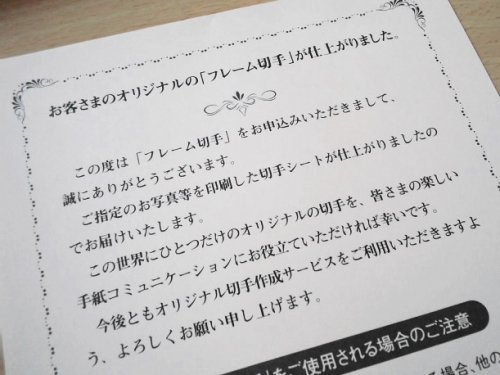 お客さまのオリジナルの「フレーム切手」が仕上がりました。
この度は「フレーム切手」をお申込みいただきまして、
誠にありがとうございます。
ご指定のお写真等を印刷した切手シートが仕上がりましたの
でお届けいたします。
この世界にひとつだけのオリジナルの切手を、皆さまの楽しい
手紙コミュニケーションにお役立ていただければ幸いです。
今後ともオリジナル切手作成サービスをご利用いただきますよ
う、よろしくお願い申し上げます。
をご使用される場合のご注意
る場合、他の